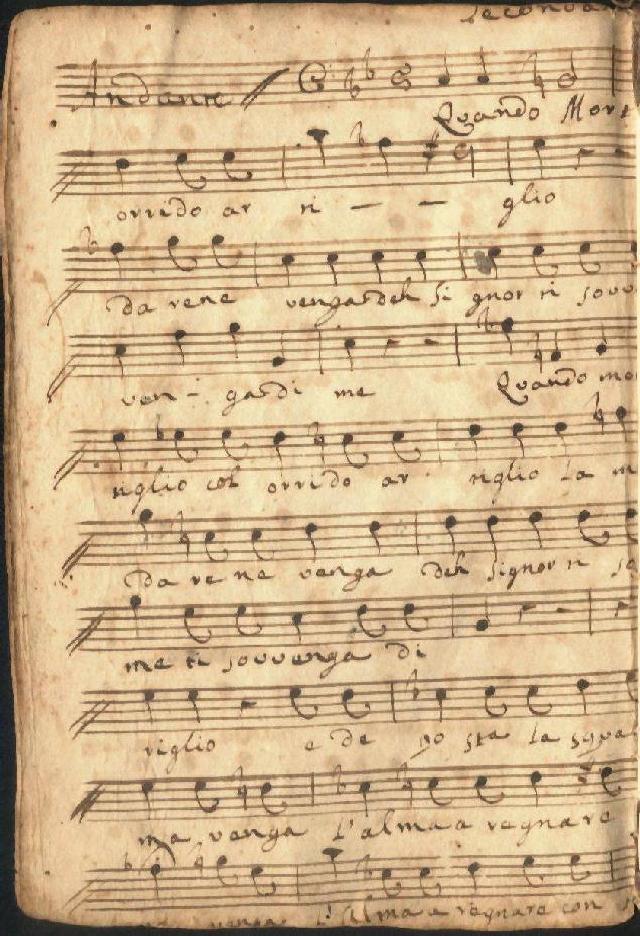 seconda
Andante
Quando Mor
orrido ar ti — — glio
da rene venga deh Signor ti sovv
ven - ga di me Quando mo
tiglio col orrido ar tiglio La m
da re ne venga deh Signor ti so
me ti sovvenga di
riglio e de po sta la squa
ma venga L'alma a regnare
venga L'alma a regnare con